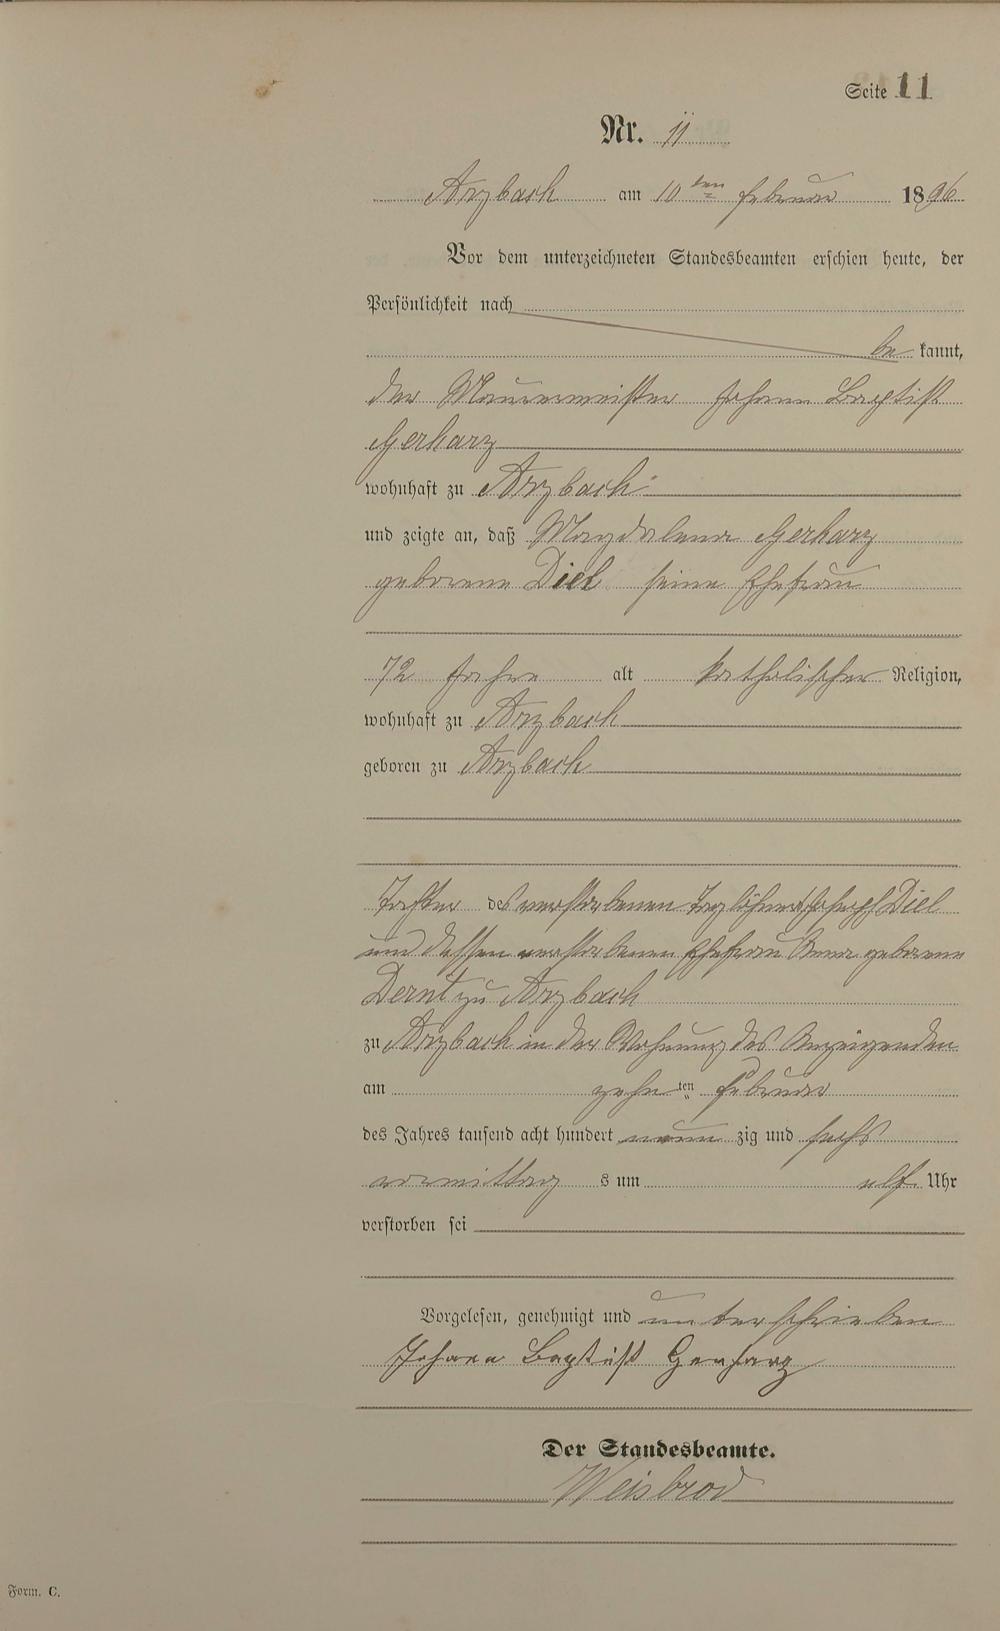 Seite 11
Nr. 11
Arzbach am 10ten Februar 1896
Vor dem unterzeichneten Standesbeamten erschien heute, der
Persönlichkeit nach
be kannt,
der Maurermeister Johann Baptist
Gerharz
wohnhaft zu Arzbach
und zeigte an, daß Magdalena Gerharz
geborene Diel seine Ehefrau
72 Jahre alt katholischer Religion,
wohnhaft zu Arzbach
geboren zu Arzbach
Tochter des verstorbenen Taglöhners Joseph Diel
und dessen verstorbenen Ehefrau Anna geborene
Dernt zu Arzbach
zu Arzbach in der Wohnung des Anzeigenden
am zehnten Februar
des Jahres tausend acht hundert neun zig und sechs
vormittag s um elf Uhr
verstorben sei
Vorgelesen, genehmigt und unterschrieben
Johann Baptist Gerharz
Der Standesbeamte.
Weisbrod
Form. C.